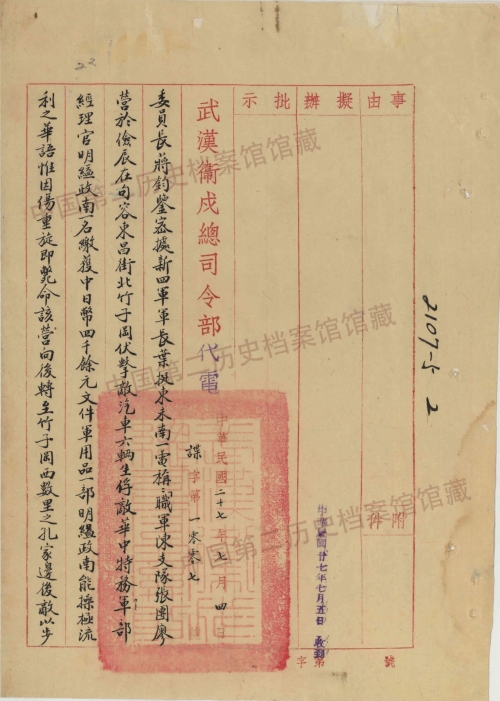 事由
擬辦
批示
附件
字第 號
中華民國廿七年七月五日 收到
2107-5 2
22
武漢衞戍總司令部代電
中華民國二十七年七月四日
諜字第一〇〇七
委員長蔣鈞鑒宻據新四軍軍長葉挺東未南一電稱：「職軍陳支隊張團廖
營於儉辰在句容東昌街北竹子岡伏擊敵汽車六輛生俘敵華中特務軍部
經理官明緼政南一名繳獲中日幣四千餘元文件軍用品一部明緼政南能操極流
利之華語惟因傷重旋即斃命該營向後轉至竹子岡西數里之孔家邊後敵以步
中国第二历史档案馆馆藏
中国第二历史档案馆馆藏
中国第二历史档案馆馆藏